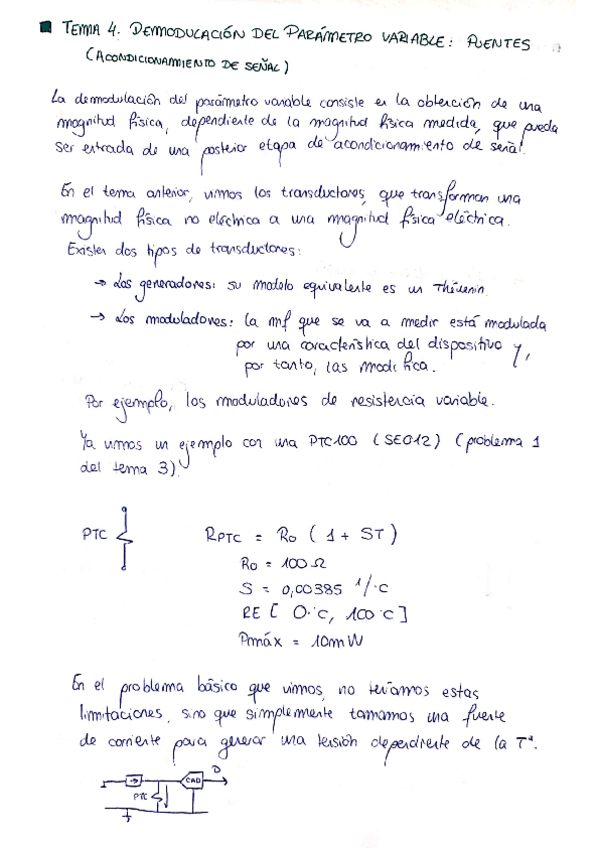 TEMA 4. DEMODULACIÓN DEL PARÁMETRO VARIABLE: PUENTES
(ACONDICIONAMIENTO DE SEÑAL)
La demodulación del parámetro variable consiste en la obtención de una
magnitud física, dependiente de la magnitud física medida, que pueda
ser entrada de una posterior etapa de acondicionamiento de señal.
En el tema anterior, vimos los transductores, que transforman una
magnitud física no eléctrica a una magnitud física eléctrica.
Existen dos tipos de transductores:
→ Los generadores: su modelo equivalente es un Thévenin.
→ Los moduladores: la mf que se va a medir está modulada
por una característica del dispositivo y,
por tanto, las modifica.
Por ejemplo, los moduladores de resistencia variable.
Ya vimos un ejemplo con una PTC100 (SEO12) (problema 1
del tema 3).
PTC
RPTC = Ro (1 + ST)
Ro = 100 Ω
S = 0,00385 1/°C
RE [0°C, 100°C]
Pmáx = 10mW
En el problema básico que vimos, no teníamos estas
limitaciones, sino que simplemente tomamos una fuente
de corriente para generar una tensión dependiente de la Tª.
CAD
D
PTC